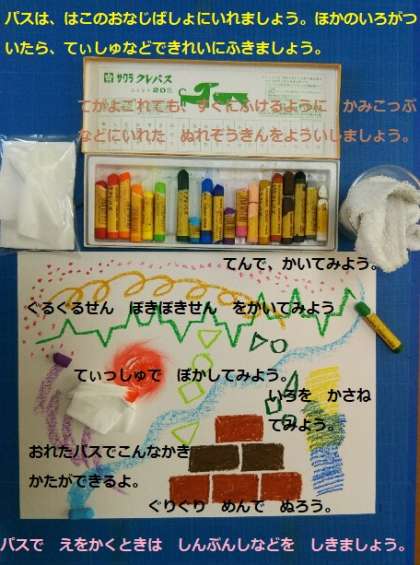 パスは、はこのおなじばしょにいれましょう。ほかのいろがつ
いたら、てぃしゅなどできれいにふきましょう。
サクラ クレパス
てがよごれても、すぐにふけるように　かみこっぷ
などにいれた　ぬれぞうきんをよういしましょう。
てんで、かいてみよう。
ぐるぐるせん　ぽきぽきせん　をかいてみよう
てぃっしゅで　ぼかしてみよう。
いろを　かさね
てみよう。
おれたパスでこんなかき
かたができるよ。
ぐりぐり　めんで　ぬろう。
パスで　えをかくときは　しんぶんしなどを　しきましょう。